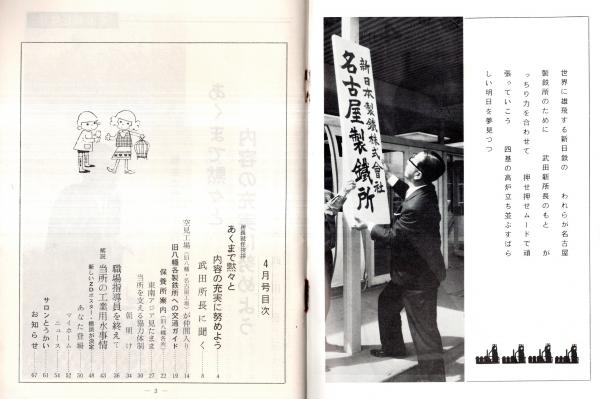 世界に雄飛する新日鉄の　われらが名古屋
製鉄所のために　武田新所長のもと　が
っちり力を合わせて　押せ押せムードで頑
張っていこう　四基の高炉立ち並ぶすばら
しい明日を夢見つつ
新日本製鐵株式會社
名古屋製鐵所
4月号目次
所長就任挨拶
あくまで黙々と
内容の充実に努めよう 4
武田所長に聞く 8
空見工場（旧八幡・名古屋工場）が仲間入り 14
旧八幡各製鉄所への交通ガイド 19
保養所案内（旧八幡各所） 22
東南アジア見たまま 27
当所を支える協力体制 30
朝明け 34
職場指導員を終えて 36
解説 当所の工業用水事情 43
新しいZDポスター・標語が決定 48
あなた登場 50
マイホーム 52
ニュース 51
サロンとうかい 61
お知らせ 67
— 3 —